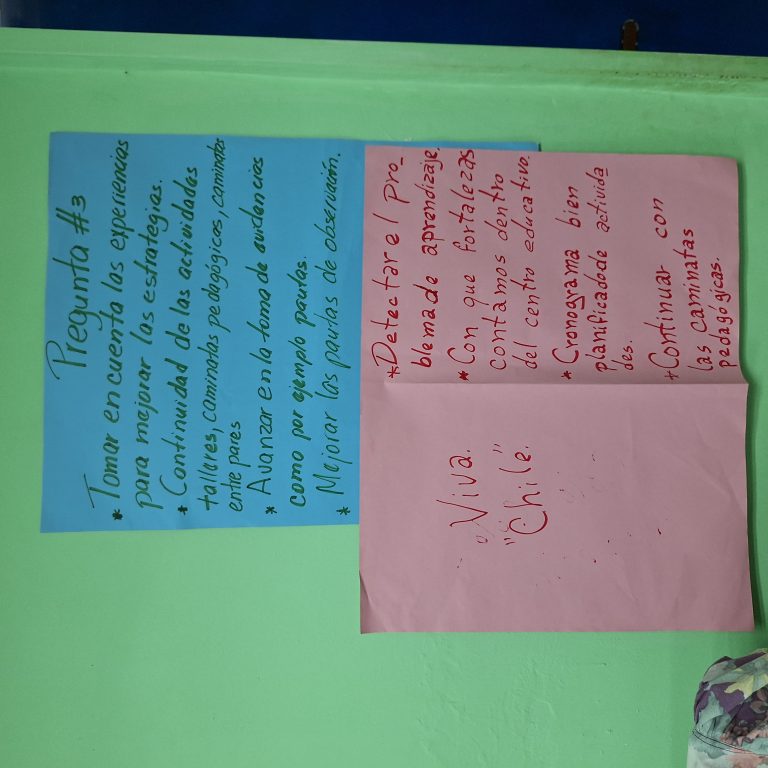 Pregunta #3
* Tomar en cuenta las experiencias
para mejorar las estrategias.
* Continuidad de las actividades
talleres, caminatas pedagógicas, caminatas
entre pares
* Avanzar en la toma de evidencias
como por ejemplo pautas.
* Mejorar las pautas de observación.
* Detectar el pro_
blema de aprendizaje.
* Con que fortalezas
contamos dentro
del centro educativo.
* Cronograma bien
planificado de activida
des.
+ Continuar con
las caminatas
pedagógicas.
Viva.
"Chile".